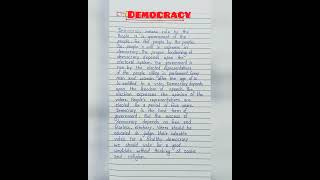 DEMOCRACY
Democracy means rule by the
People. It is government of the
people, for the people by the people.
The people's will is supreme in
democracy. The proper functioning of
democracy depends upon the
electoral system. The government is
run by the elected representatives
of the people called in parliament. Every
man and women after the age of 18
is entitled to a vote. Democracy depends upon
the freedom of speech. The
election expresses the opinion of the
voters. People's representatives are
elected for a period of five years.
Democracy is the best form of
government. But the success of
democracy depends on free and
fearless election. Voters should be
educated to judge their valuable
votes. For a healthy democracy
we should vote for a good
candidate without thinking of caste
and religion.